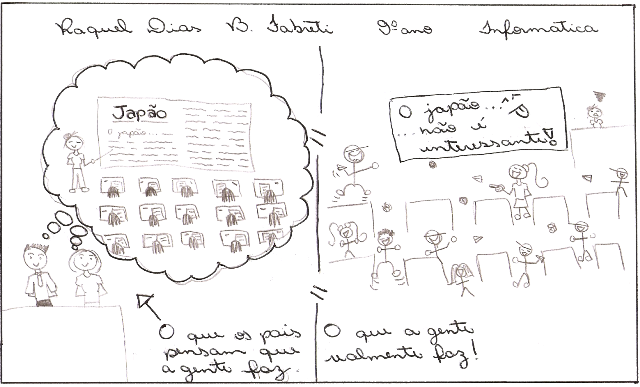 Raquel Dias B. Fabreti 9º ano Informática
Japão
O japão...
O japão...
...não é
interessanti!
O que os pais
pensam que
a gente faz.
O que a gente
realmente faz!